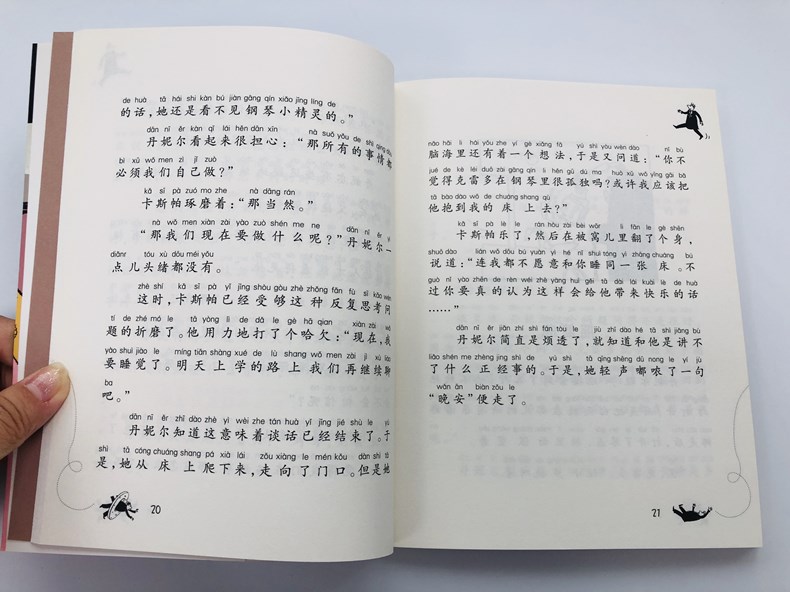 de huà tā hái shì kàn bú jiàn gāng qín xiǎo jīng líng de
的话,她还是看不见钢琴小精灵的。”
dān nī ěr kàn qǐ lái hěn dān xīn nà suǒ yǒu de shì qing
丹妮尔看起来很担心:“那所有的事情都
bì xū wǒ men zì jǐ zuò
必须我们自己做?”
kǎ sī pà zuó mo zhe nà dāng rán
卡斯帕琢磨着:“那当然。”
nà wǒ men xiàn zài yào zuò shén me ne dān nī ěr yì
“那我们现在要做什么呢?”丹妮尔一
diǎnr tóu xù dōu méi yǒu
点儿头绪都没有。
zhè shí kǎ sī pà yǐ jīng shòu gòu zhè zhǒng fǎn fù sī kǎo wèn
这时,卡斯帕已经受够这种反复思考问
tí de zhé mó le tā yòng lì de dǎ le gè hā qian xiàn zài wǒ
题的折磨了。他用力地打了个哈欠:“现在,我
yào shuì jiào le míng tiān shàng xué de lù shang wǒ men zài jì xù liáo
要睡觉了。明天上学的路上我们再继续聊
ba
吧。”
dān nī ěr zhī dào zhè yì wèi zhe tán huà yǐ jīng jié shù le yú
丹妮尔知道这意味着谈话已经结束了。于
shì tā cóng chuáng shang pá xià lái zǒu xiàng le mén kǒu dàn shì tā
是,她从床上爬下来,走向了门口。但是她
20
nǎo hǎi li hái yǒu zhe yí gè xiǎng fǎ yú shì yòu wèn dào nǐ bù
脑海里还有着一个想法,于是又问道:“你不
jué de kè léi duō zài gāng qín li hěn gū dú ma huò xǔ wǒ yīng gāi bǎ
觉得克雷多在钢琴里很孤独吗?或许我应该把
tā bào dào wǒ de chuáng shàng qù
他抱到我的床上去?”
kǎ sī pà lè le rán hòu zài bèi wōr li fān le gè shēn
卡斯帕乐了,然后在被窝儿里翻了个身,
shuō dào lián wǒ dōu bú yuàn yì hé nǐ shuì tóng yì zhāng chuáng bú
说道:“连我都不愿意和你睡同一张床。不
guò nǐ yào zhēn de rèn wéi zhè yàng huì gěi tā dài lái kuài lè de huà
过你要真的认为这样会给他带来快乐的话
……”
dān nī ěr jiǎn zhí shì fán tòu le jiù zhī dào hé tā shì jiǎng bù
丹妮尔简直是烦透了,就知道和他是讲不
liǎo shén me zhèng jīng shì de yú shì tā qīng shēng dū nong le yí jù
了什么正经事的。于是,她轻声嘟哝了一句
wǎn ān biàn zǒu le
“晚安”便走了。
21